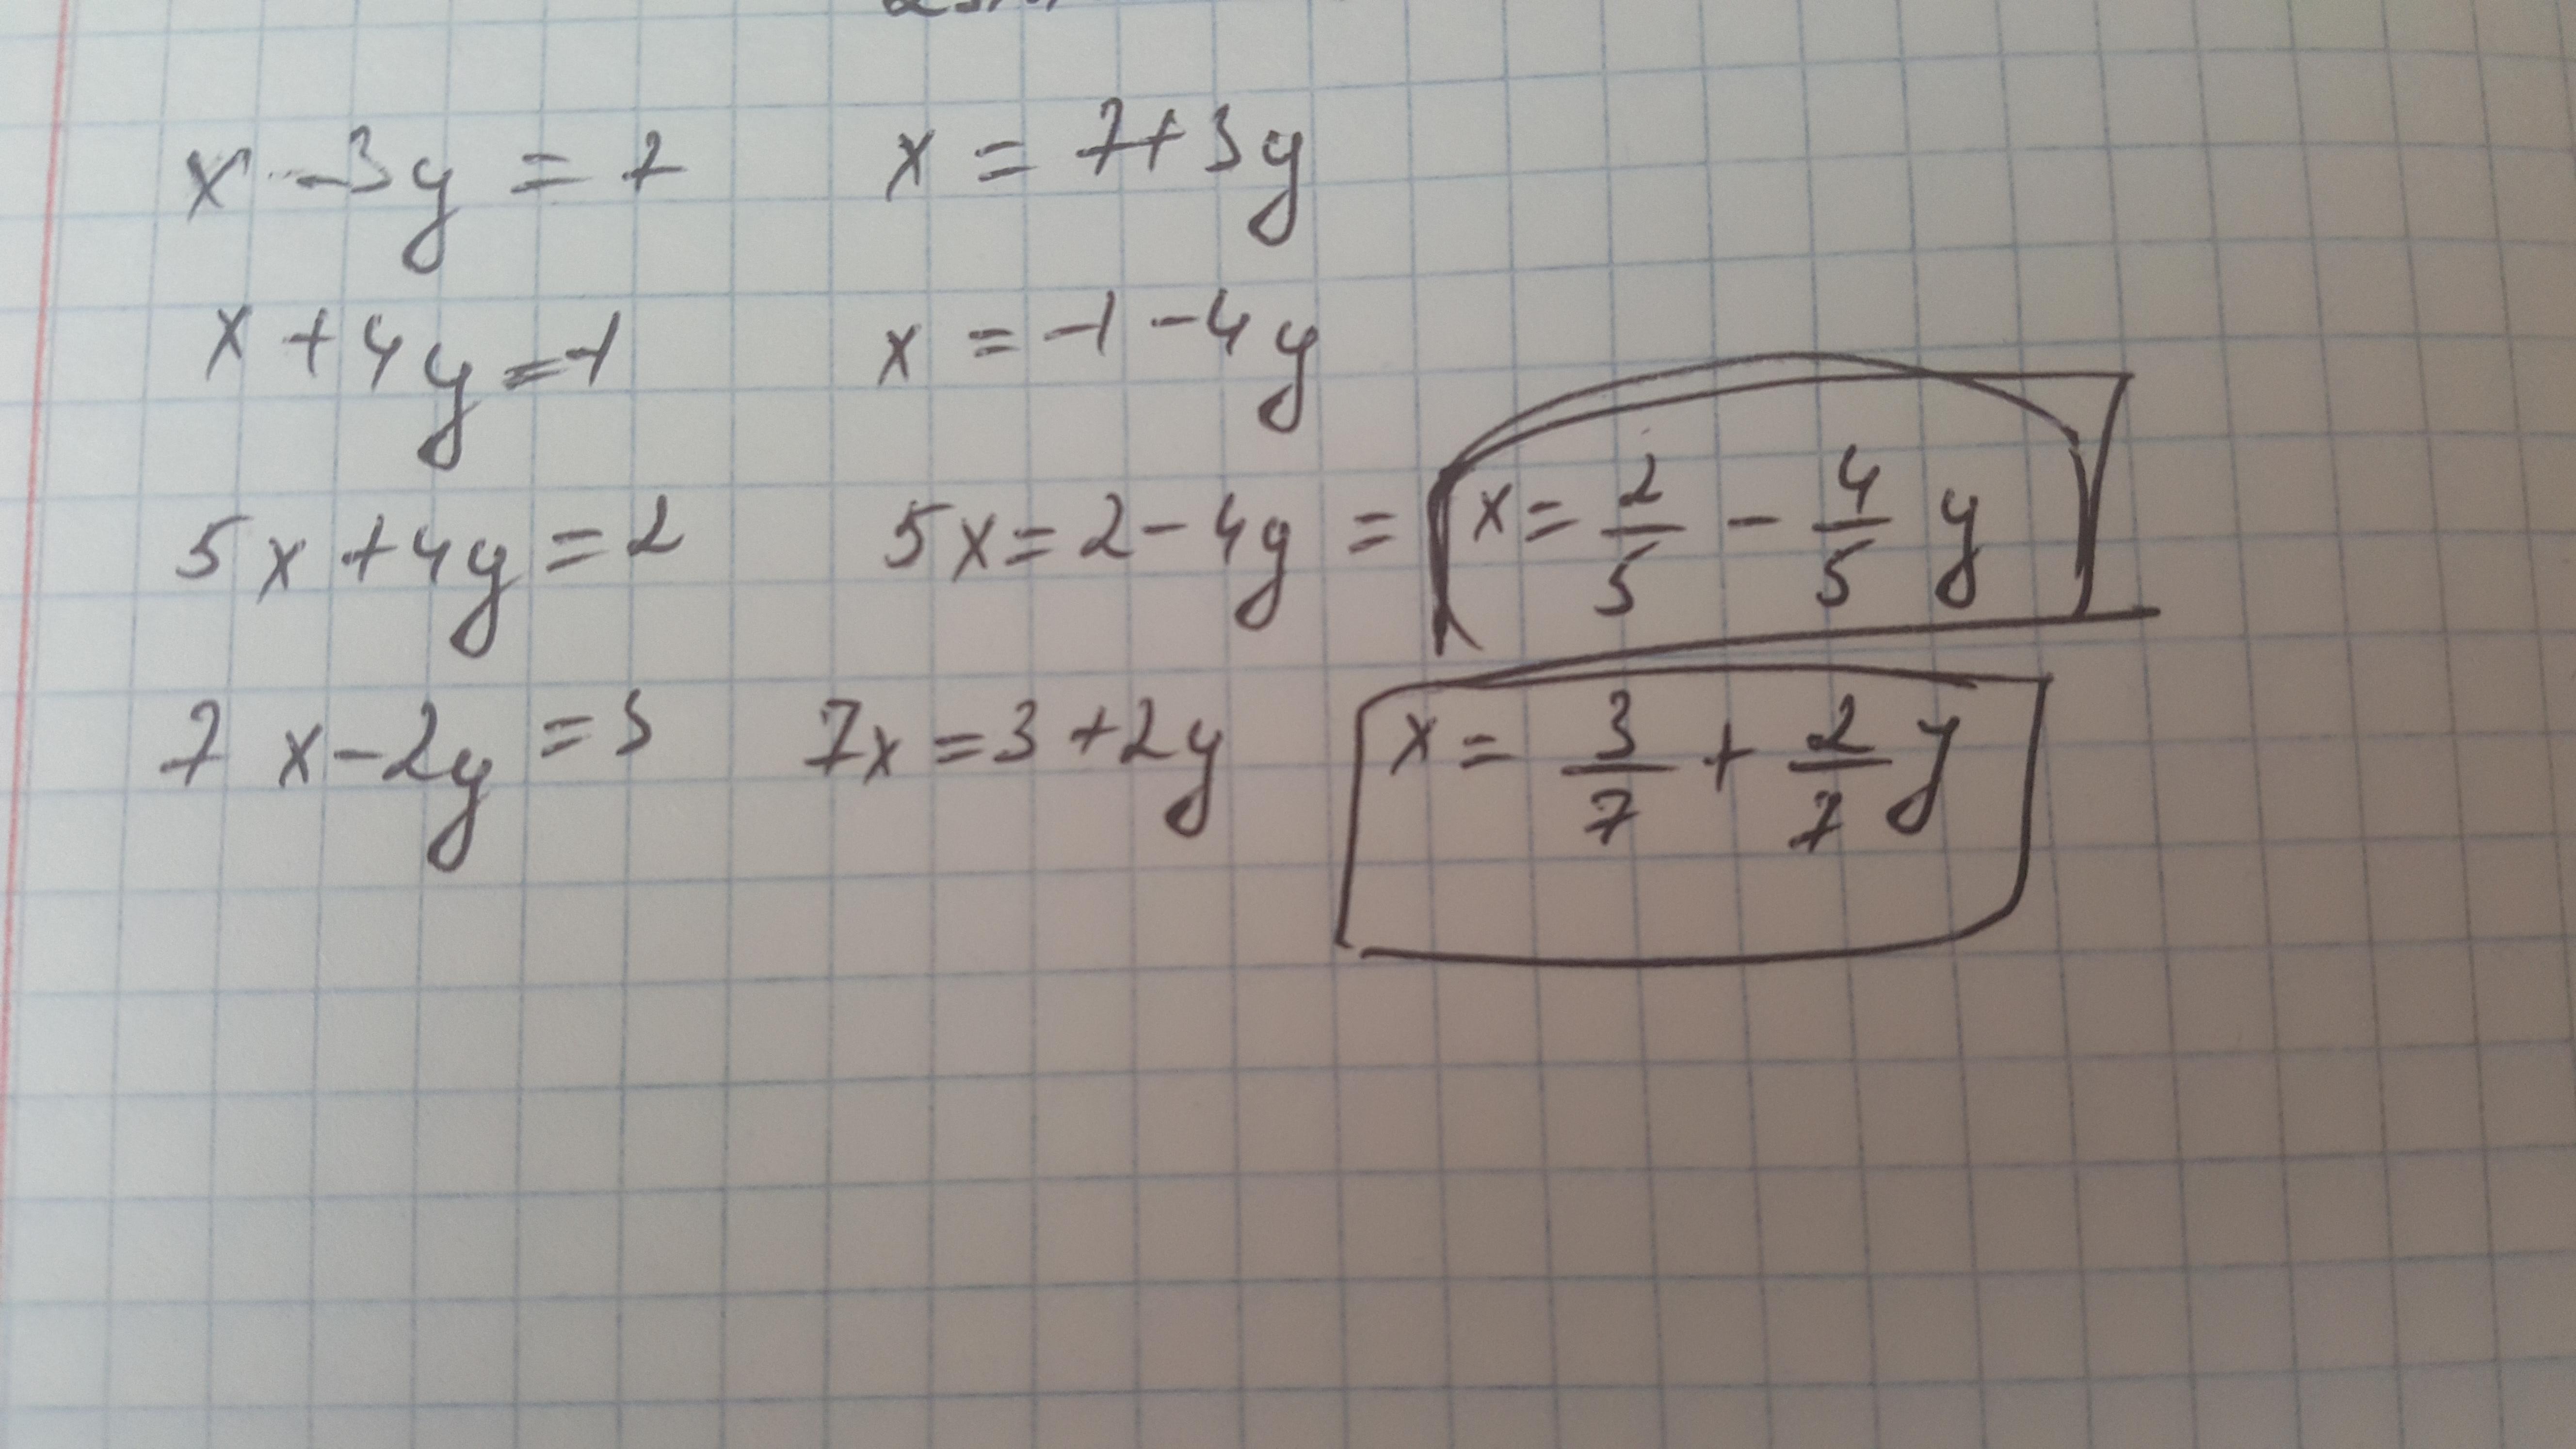 x - 3y = 7 x = 7 + 3y
x + 4y = -1 x = -1 - 4y
5x + 4y = 2 5x = 2 - 4y = x = 2/5 - 4/5 y
7x - 2y = 3 7x = 3 + 2y x = 3/7 + 2/7 y